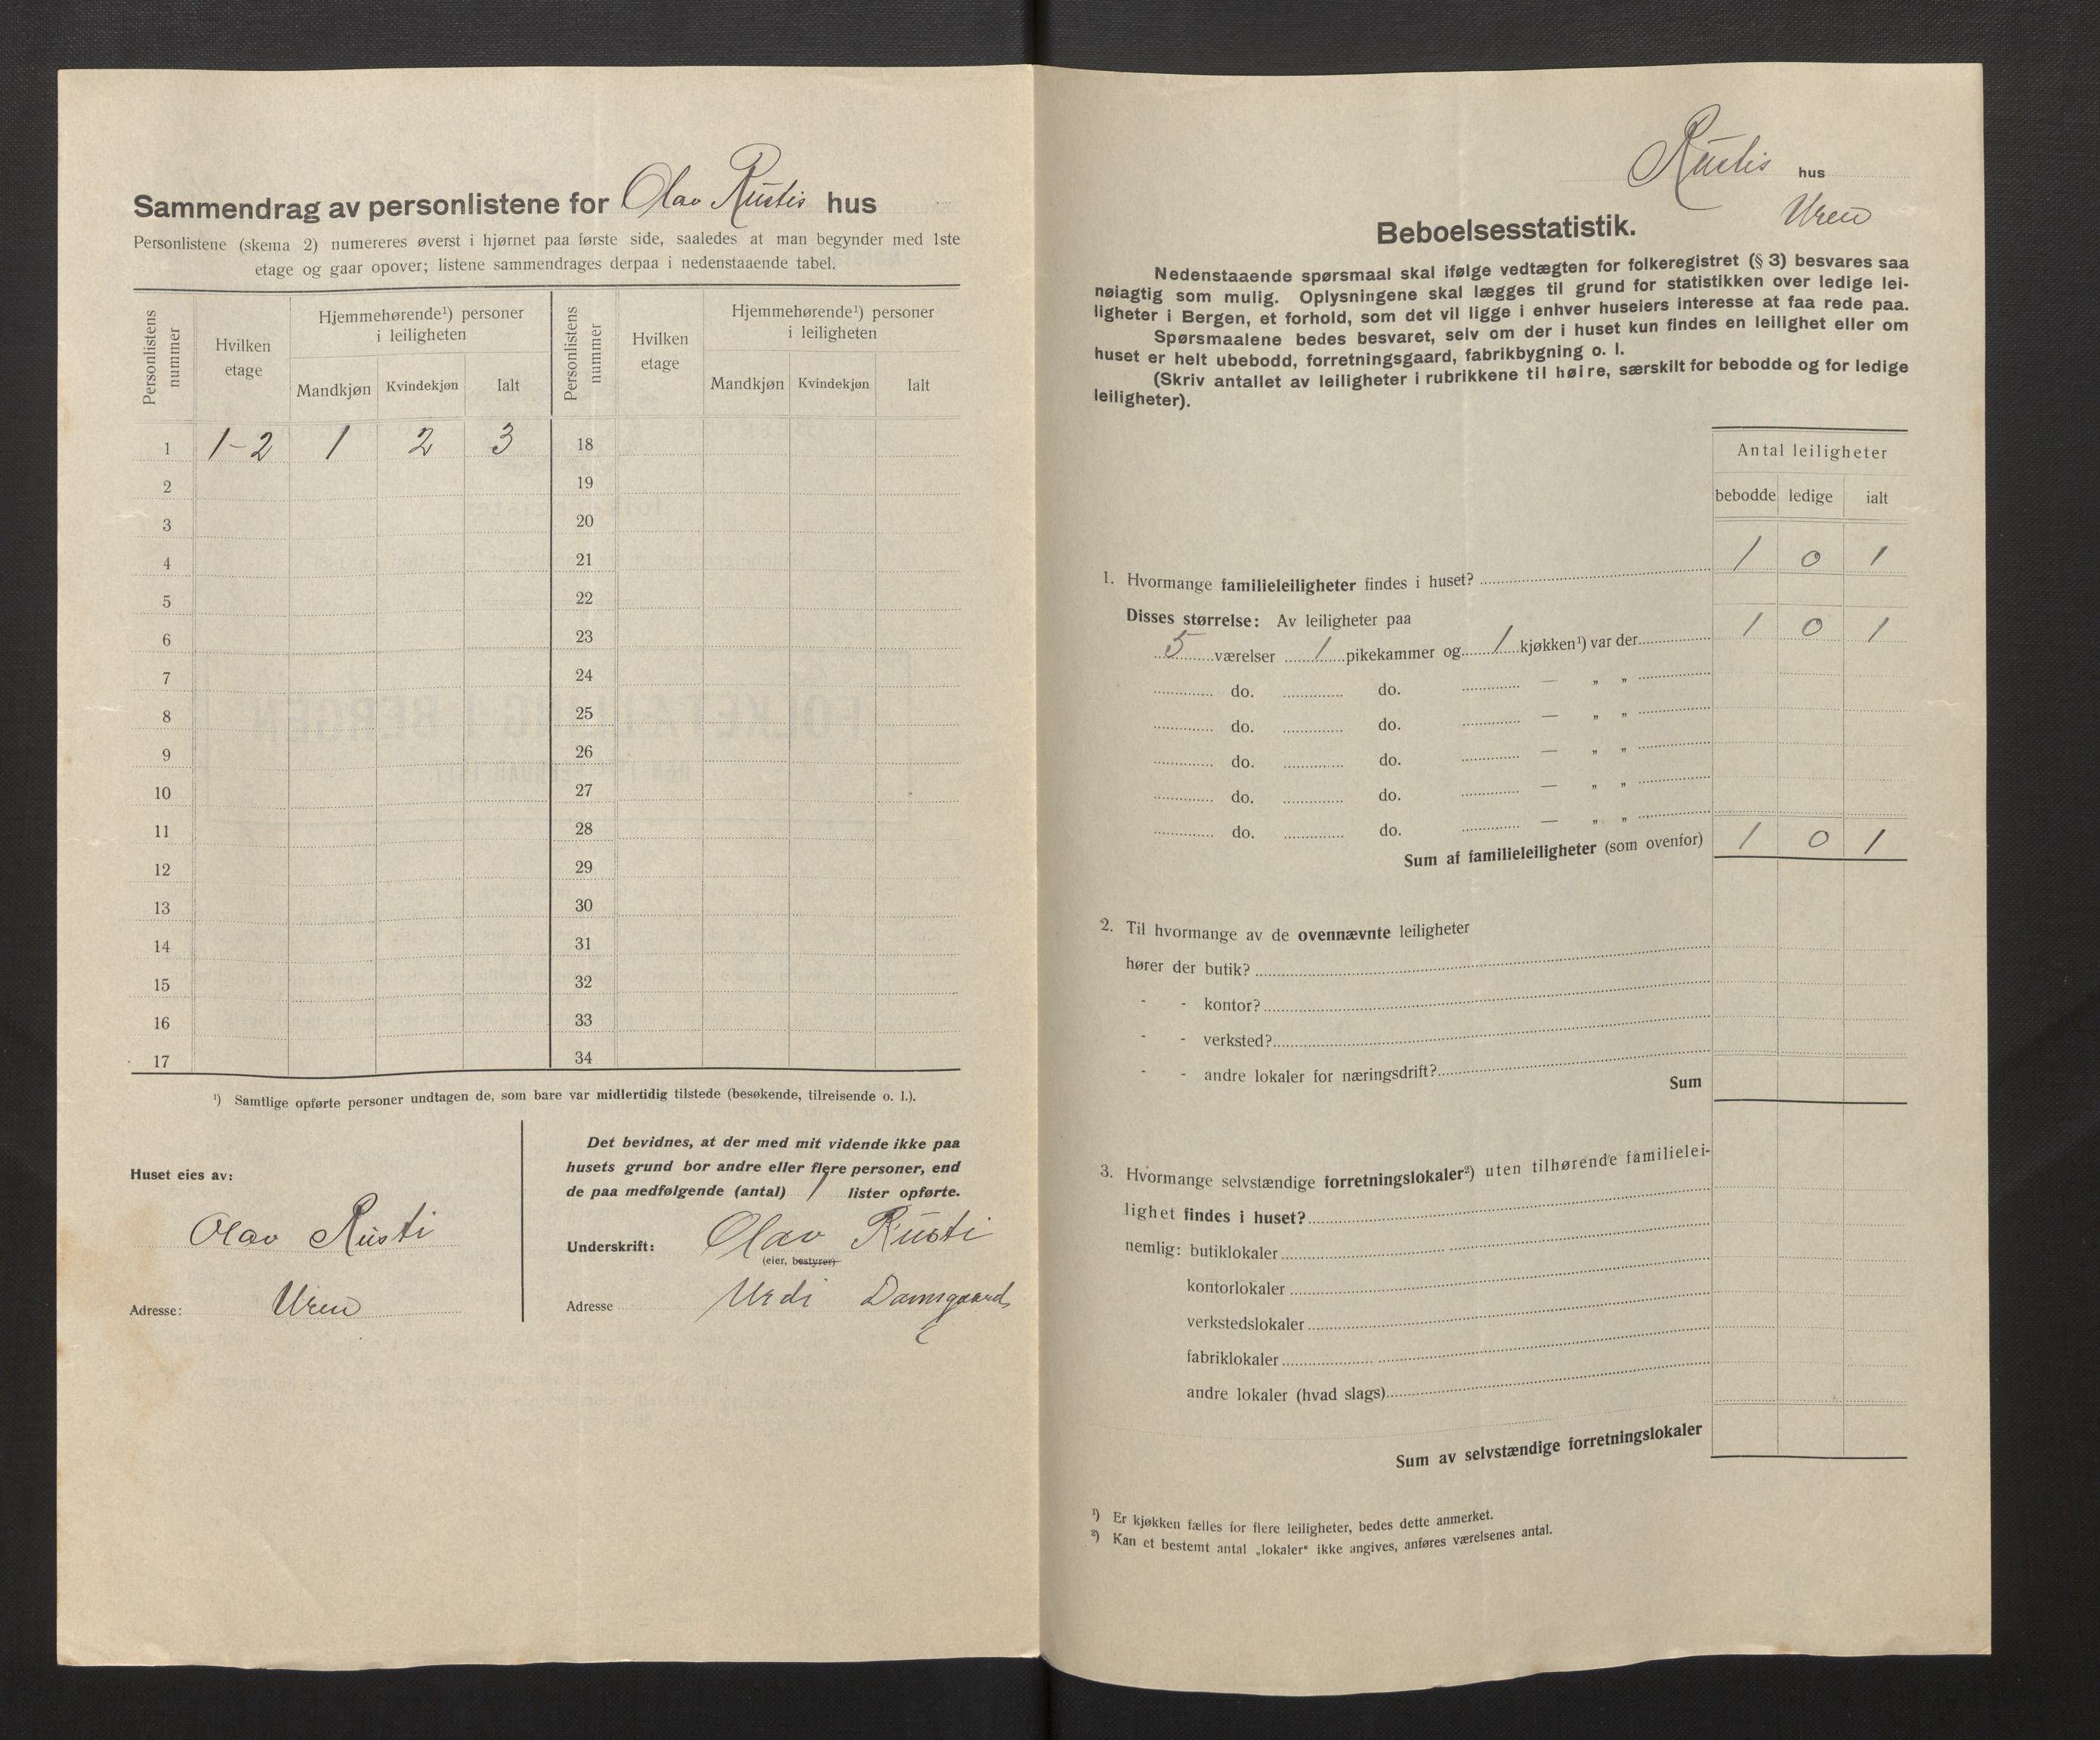 Sammendrag av personlistene for Olav Rustis hus
Personlistene (skema 2) numereres øverst i hjørnet paa første side, saaledes at man begynder med 1ste
etage og gaar opover; listene sammendrages derpaa i nedenstaaende tabel.
Personlistens nummer
Hvilken etage
Hjemmehørende¹) personer i leiligheten
Mandkjøn Kvindekjøn Ialt
Personlistens nummer
Hvilken etage
Hjemmehørende¹) personer i leiligheten
Mandkjøn Kvindekjøn Ialt
1 1-2 1 2 3 18
2 19
3 20
4 21
5 22
6 23
7 24
8 25
9 26
10 27
11 28
12 29
13 30
14 31
15 32
16 33
17 34
¹) Samtlige opførte personer undtagen de, som bare var midlertidig tilstede (besøkende, tilreisende o. l.).
Huset eies av:
Olav Rusti
Adresse: Uren
Det bevidnes, at der med mit vidende ikke paa
husets grund bor andre eller flere personer, end
de paa medfølgende (antal) 1 lister opførte.
Underskrift: Olav Rusti
(eier, bestyrer)
Adresse Urdi Damsgaard
Rustis hus
Uren
Beboelsesstatistik.
Nedenstaaende spørsmaal skal ifølge vedtægten for folkeregistret (§ 3) besvares saa
nøiagtig som mulig. Oplysningene skal lægges til grund for statistikken over ledige lei-
ligheter i Bergen, et forhold, som det vil ligge i enhver huseiers interesse at faa rede paa.
Spørsmaalene bedes besvaret, selv om der i huset kun findes en leilighet eller om
huset er helt ubebodd, forretningsgaard, fabrikbygning o. l.
(Skriv antallet av leiligheter i rubrikkene til høire, særskilt for bebodde og for ledige
leiligheter).
Antal leiligheter
bebodde ledige ialt
1. Hvormange familieleiligheter findes i huset? 1 0 1
Disses størrelse: Av leiligheter paa
5 værelser 1 pikekammer og 1 kjøkken¹) var der 1 0 1
do. do. — „ „
do. do. — „ „
do. do. — „ „
do. do. — „ „
do. do. — „ „
Sum af familieleiligheter (som ovenfor) 1 0 1
2. Til hvormange av de ovennævnte leiligheter
hører der butik?
- - kontor?
- - verksted?
- - andre lokaler for næringsdrift?
Sum
3. Hvormange selvstændige forretningslokaler²) uten tilhørende familielei-
lighet findes i huset?
nemlig: butiklokaler
kontorlokaler
verkstedslokaler
fabriklokaler
andre lokaler (hvad slags)
Sum av selvstændige forretningslokaler
¹) Er kjøkken fælles for flere leiligheter, bedes dette anmerket.
²) Kan et bestemt antal „lokaler“ ikke angives, anføres værelsenes antal.